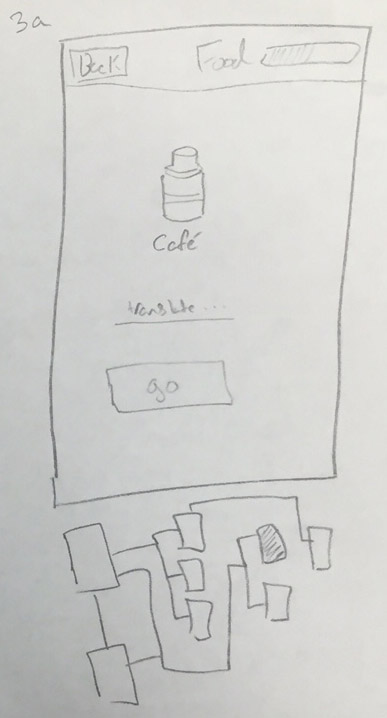 3a
Back Food
Café
translate ...
go